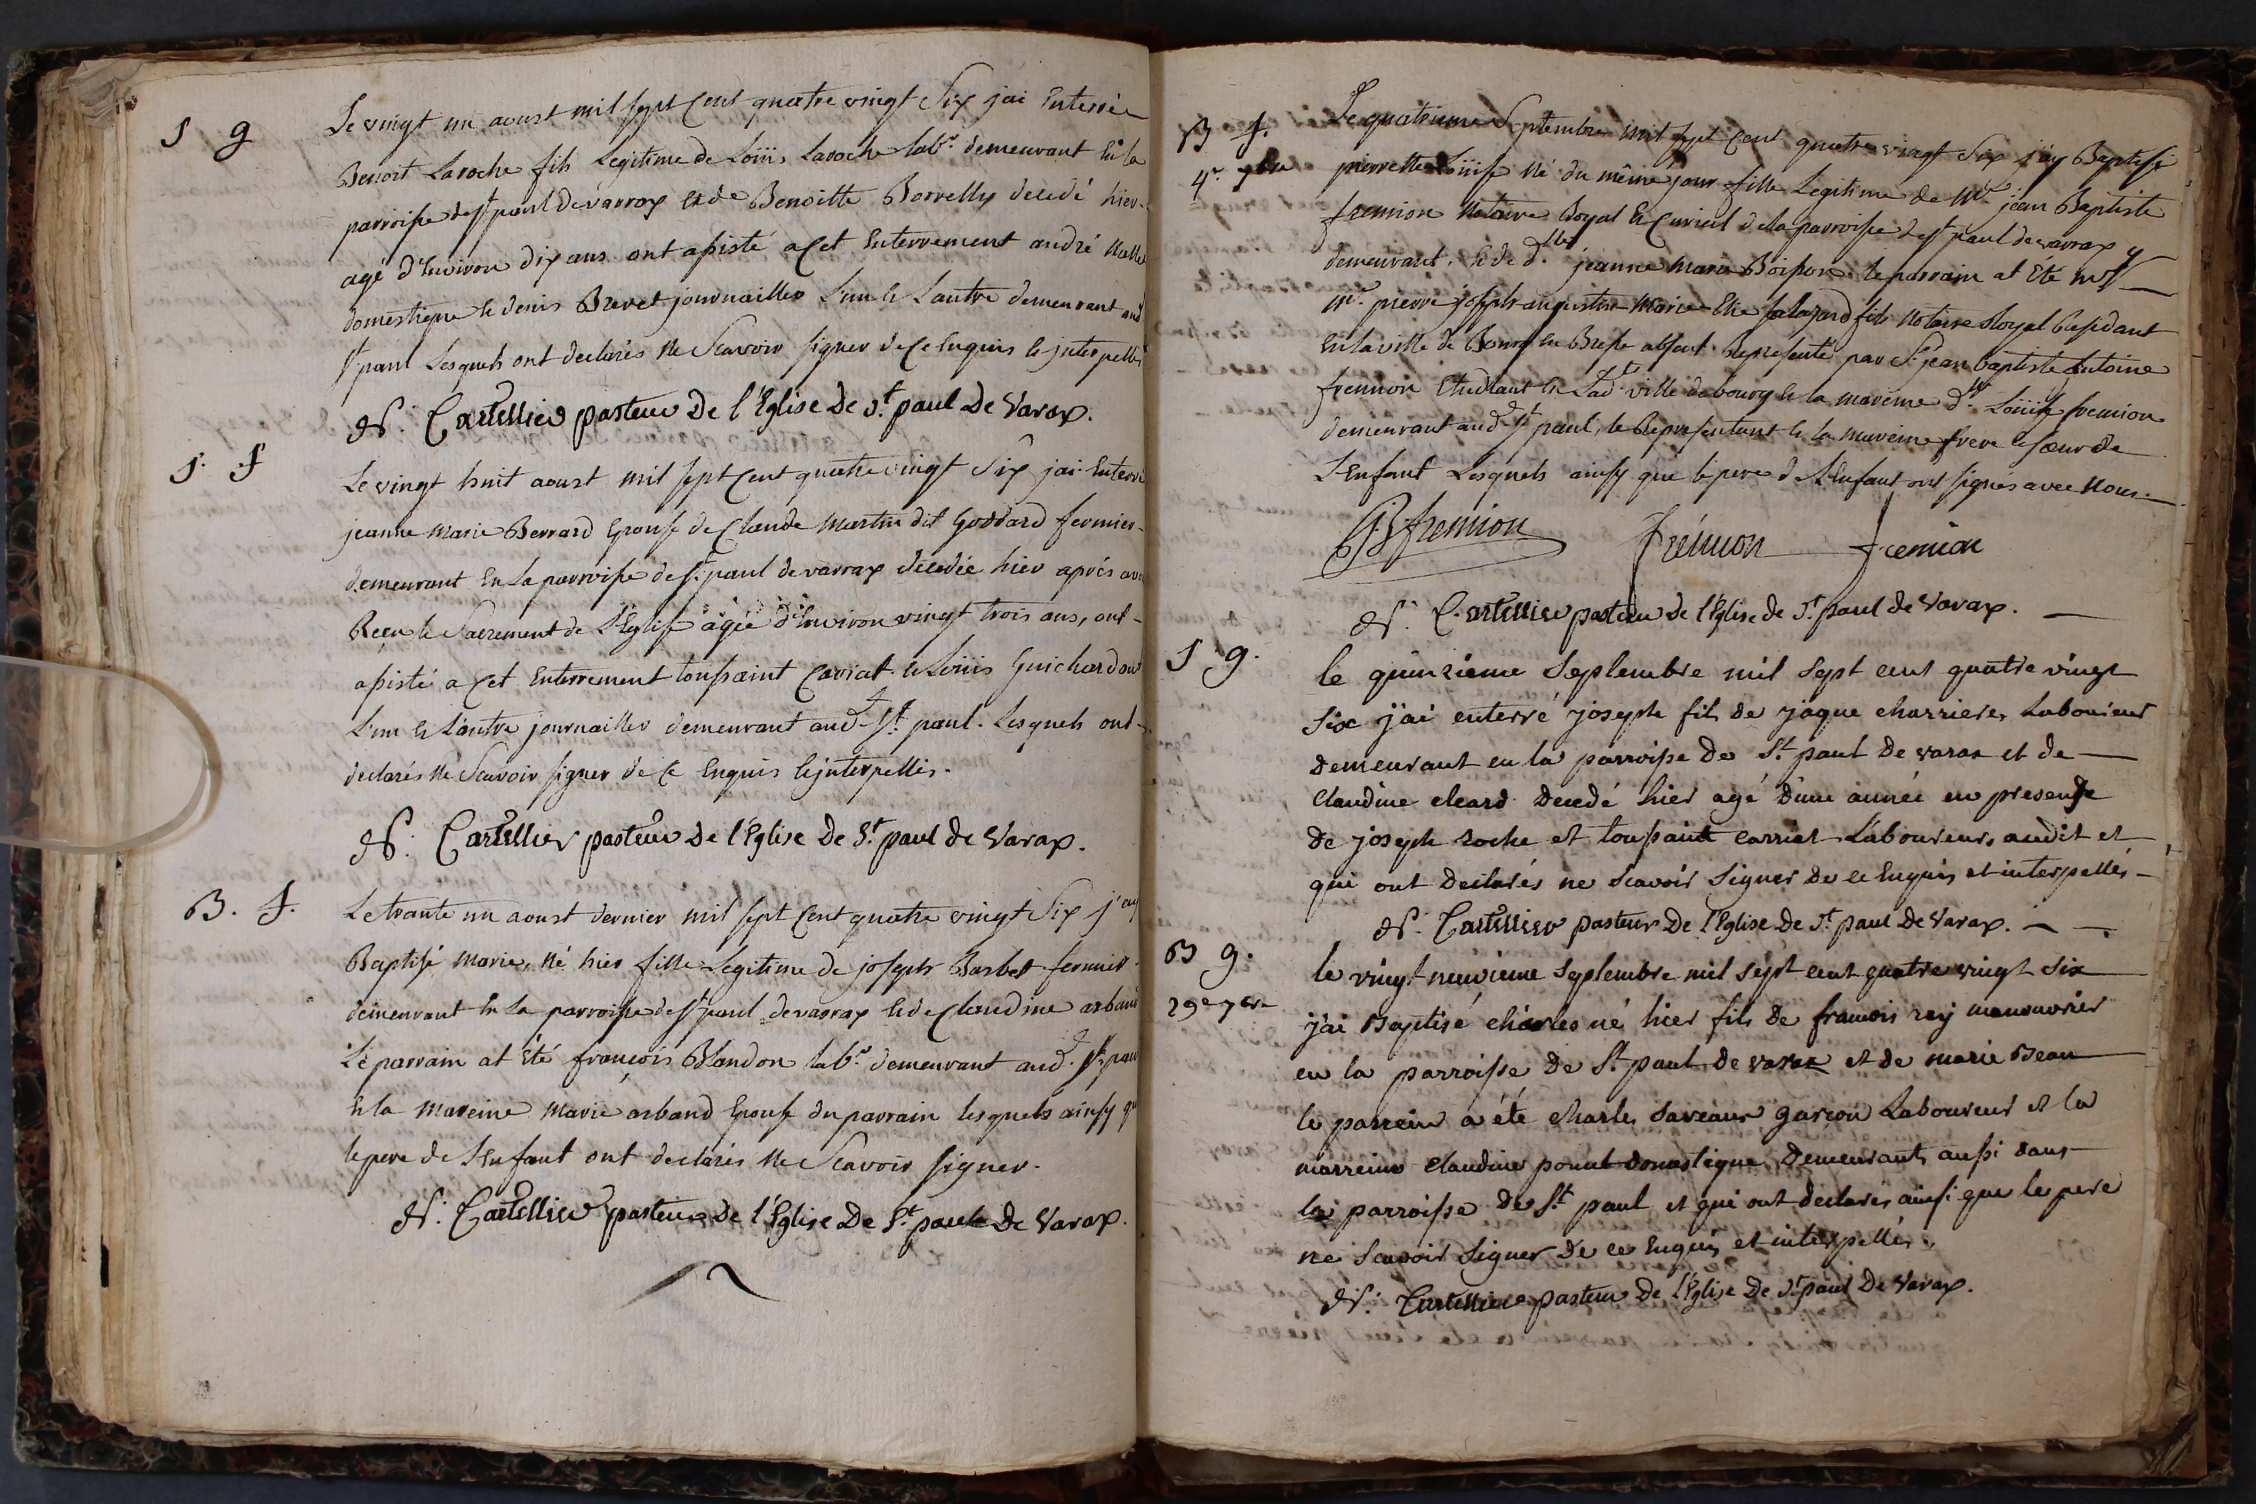 S g
Le vingt un aoust mil sept Cent quatre vingt Six j'ai Enterré
Benoit Laroche fils Legitime de Loüis Laroche labr. demeurant En la
parroisse de st paul de varrax et de Benoitte Borrelly decedé hier
agé d'Environ dix ans ont assisté a Cet Enterrement andré
domestique et denis Brevet journaillier L'un et L'autre demeurant aud
st paul Lesquels ont declarés Ne Scavoir signer de Ce Enquis et jnterpellés
Cartellier pasteur De l'Eglise De St. paul De Varax.
S. f
Le vingt huit aoust mil sept Cent quatre vingt Six j'ai Enterré
jeanne Marie Berrard Epouse de Claude Martin dit Goddard fermier
demeurant En La parroisse de st paul de varrax decedée hier aprés avoir
Reçu le Sacrement de L'Eglise agée d'Environ vingt trois ans, ont
assisté a Cet Enterrement toussaint Carriat et Loüis Guichardon
L'un et L'autre journaillier demeurant aud st. paul. Lesquels ont
declarés Ne Scavoir signer de Ce Enquis et jnterpellés.
Cartellier pasteur De l'Eglise De St. paul de Varax.
B. f.
Le trante un aoust dernier mil sept Cent quatre vingt Six j'ay
Baptisé Marie, Né hier fille Legitime de joseph Barbet fermier
demeurant En La parroisse de st paul de varrax et de Claudine arband
Le parrain at été françois Blandon labr. demeurant aud. st. paul
et la Mareine Marie arband Epouse du parrain lesquels ainsy que
le pere de L'Enfant ont declarés Ne Scavoir signer.
Cartellier pasteur de l'Eglise De St. paul De Varax.
B f.
4e. 7bre
Le quatrieme Septembre mil sept Cent quatre vingt Six j'ay Baptisé
pierrette Loüise Né du même jour fille Legitime de Mre jean Baptiste
fremion Notaire Royal et Curial de la parroisse de st paul de varrax y
demeurant, et de dlle. jeanne Marie Boisson le parrain at Eté
Mr. pierre joseph augustin Marie Elie fils Notaire Royal Residant
En la ville de Bourg En Bresse absent Representé par Sr. jean Baptiste Antoine
fremion Etudiant En Lad ville de bourg et la mareine dlle Loüise fremion
demeurant aud st paul, le Representant et la Mareine frere et sœur de
L'Enfant Lesquels ainsy que le pere de L'Enfant ont signés avec Nous.
JB fremion fremion fremion
Cartellier pasteur de l'Eglise de St. paul de Varax.
S g.
le quinzieme Septembre mil sept cent quatre vingt
six j'ai enterré joseph fils de jaque charrieres Laboureur
demeurant en la parroisse De St. paul De varax et de
Claudine cleard Decedé hier agé D'une année en presence
De joseph roche et toussaint carriat Laboureurs audit et
qui ont Declarés ne Scavoir Signer De ce Enquis et interpellés
Cartellier pasteur De l'Eglise De St. paul De Varax.
B g.
29e 7bre
le vingt neuvieme Septembre mil sept cent quatre vingt six
j'ai Baptisé charles né hier fils de francois rey manouvrier
en la parroisse De St. paul de varax et de marie Beau
le parrein a été charles Saveaux garçon Laboureur et la
marreine Claudine domestique Demeurants aussi dans
la parroisse De St. paul et qui ont declarés ainsi que le pere
ne Scavoir Signer De ce Enquis et interpellés.
Cartellier pasteur De l'Eglise De St. paul De Varax.